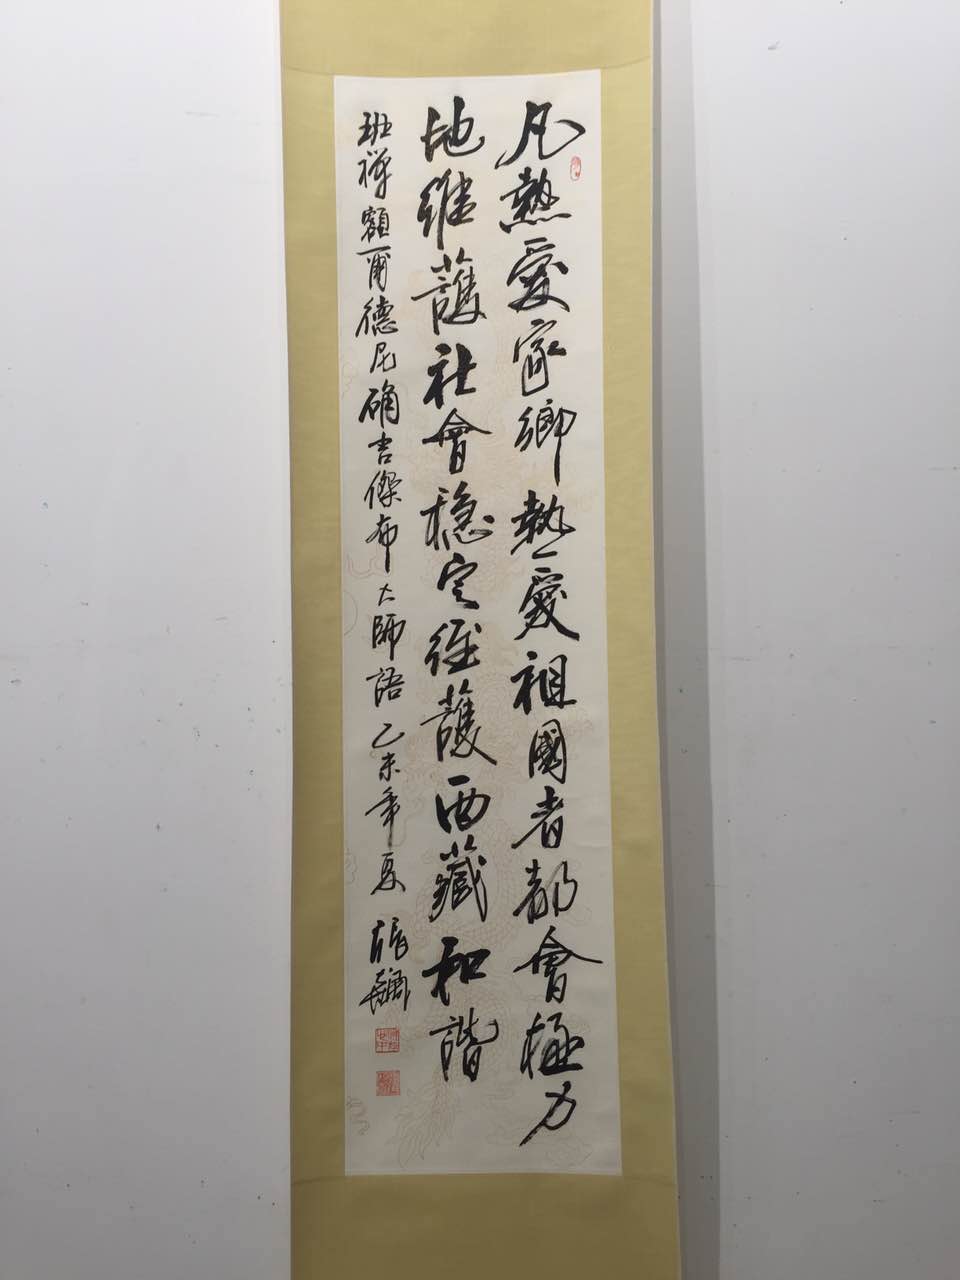 凡熱愛家鄉熱愛祖國者都會極力
地維護社會穩定維護西藏和諧
班禅額爾德尼确吉傑布大師語 乙未年夏 張飆